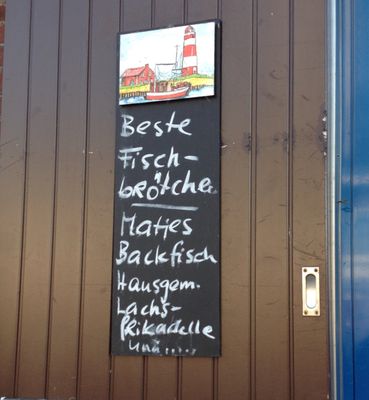 Beste
Fisch-
brötchen
Matjes
Backfisch
Hausgem.
Lachs-
Frikadelle
und.....